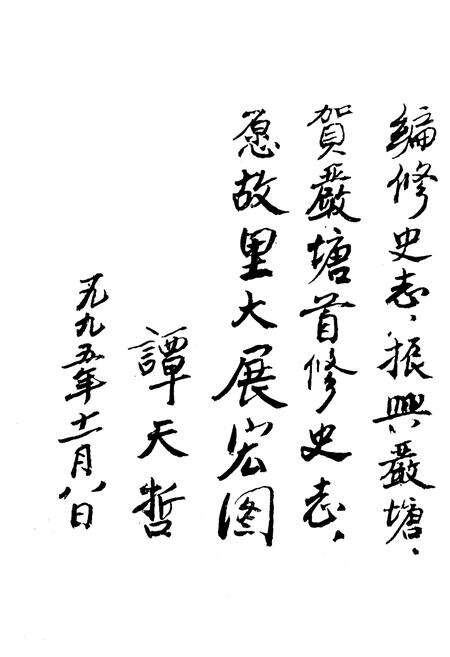 編修史志，振興嚴塘，
賀嚴塘首修史志，
愿故里大展宏图
譚天哲
一九九五年十一月八日